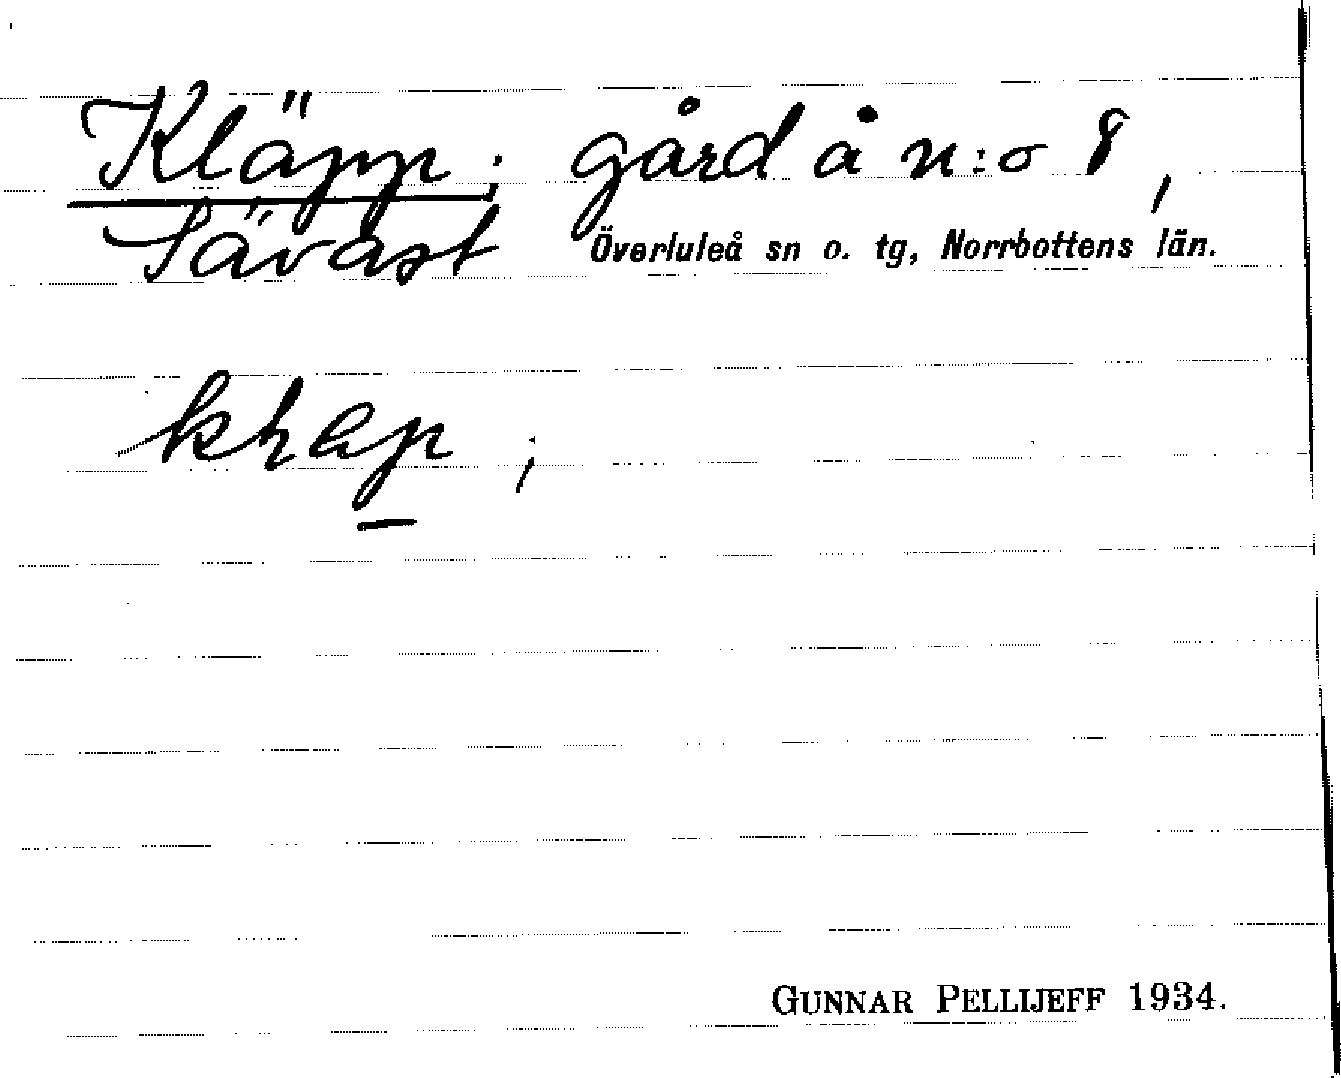 Kläpp; gård å n:o 8,
Sävast Överluleå sn o. tg, Norrbottens län.
GUNNAR PELLIJEFF 1934.